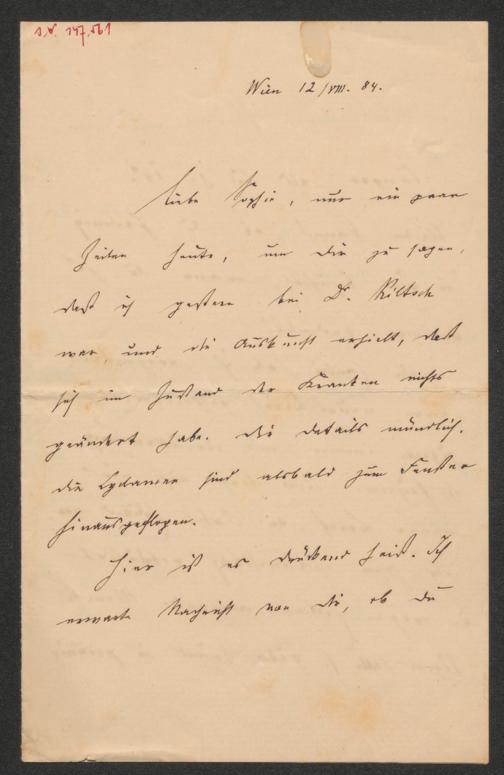 I.N. 147.561
Wien 12/VIII. 84.
Liebe Sophie, nur ein paar
Zeilen heute, um Dir zu sagen,
daß ich gestern bei Dr. Kiltsch
war und die Auskunft erhielt, daß
sich im Zustand der Kranken nichts
geändert habe. Die Details mündlich.
Die Cyclamen sind alsbald zum Fenster
hinausgeflogen.
Hier ist es drückend heiß. Ich
erwarte Nachricht von Dir, ob Du